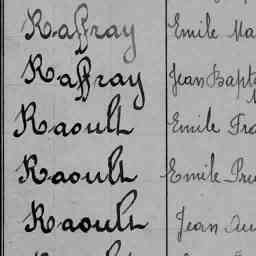 Raffray Emile Ma
Raffray Jean Bapt
Raoult Emile Fra
Raoult Emile Pru
Raoult Jean Au